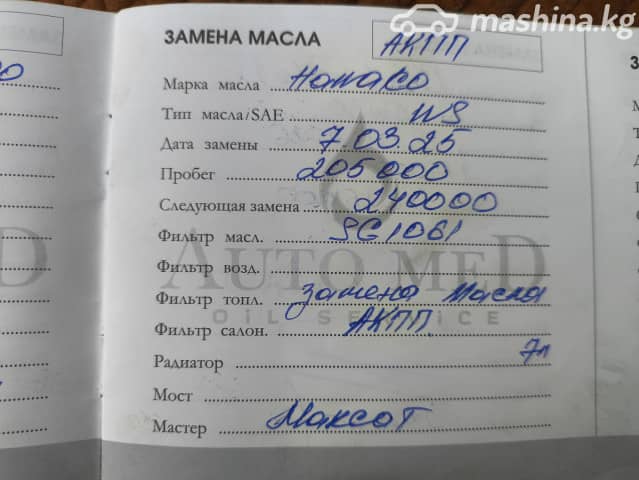 mashina.kg
ЗАМЕНА МАСЛА АКПП
Марка масла Намасо
Тип масла/SAE WS
Дата замены 7.03.25
Пробег 205000
Следующая замена 240000
Фильтр масл. SG1061
Фильтр возд.
AUTO MED
Фильтр топл. замена масла
OIL SERVICE
Фильтр салон. АКПП
Радиатор 7л
Мост
Мастер Максат